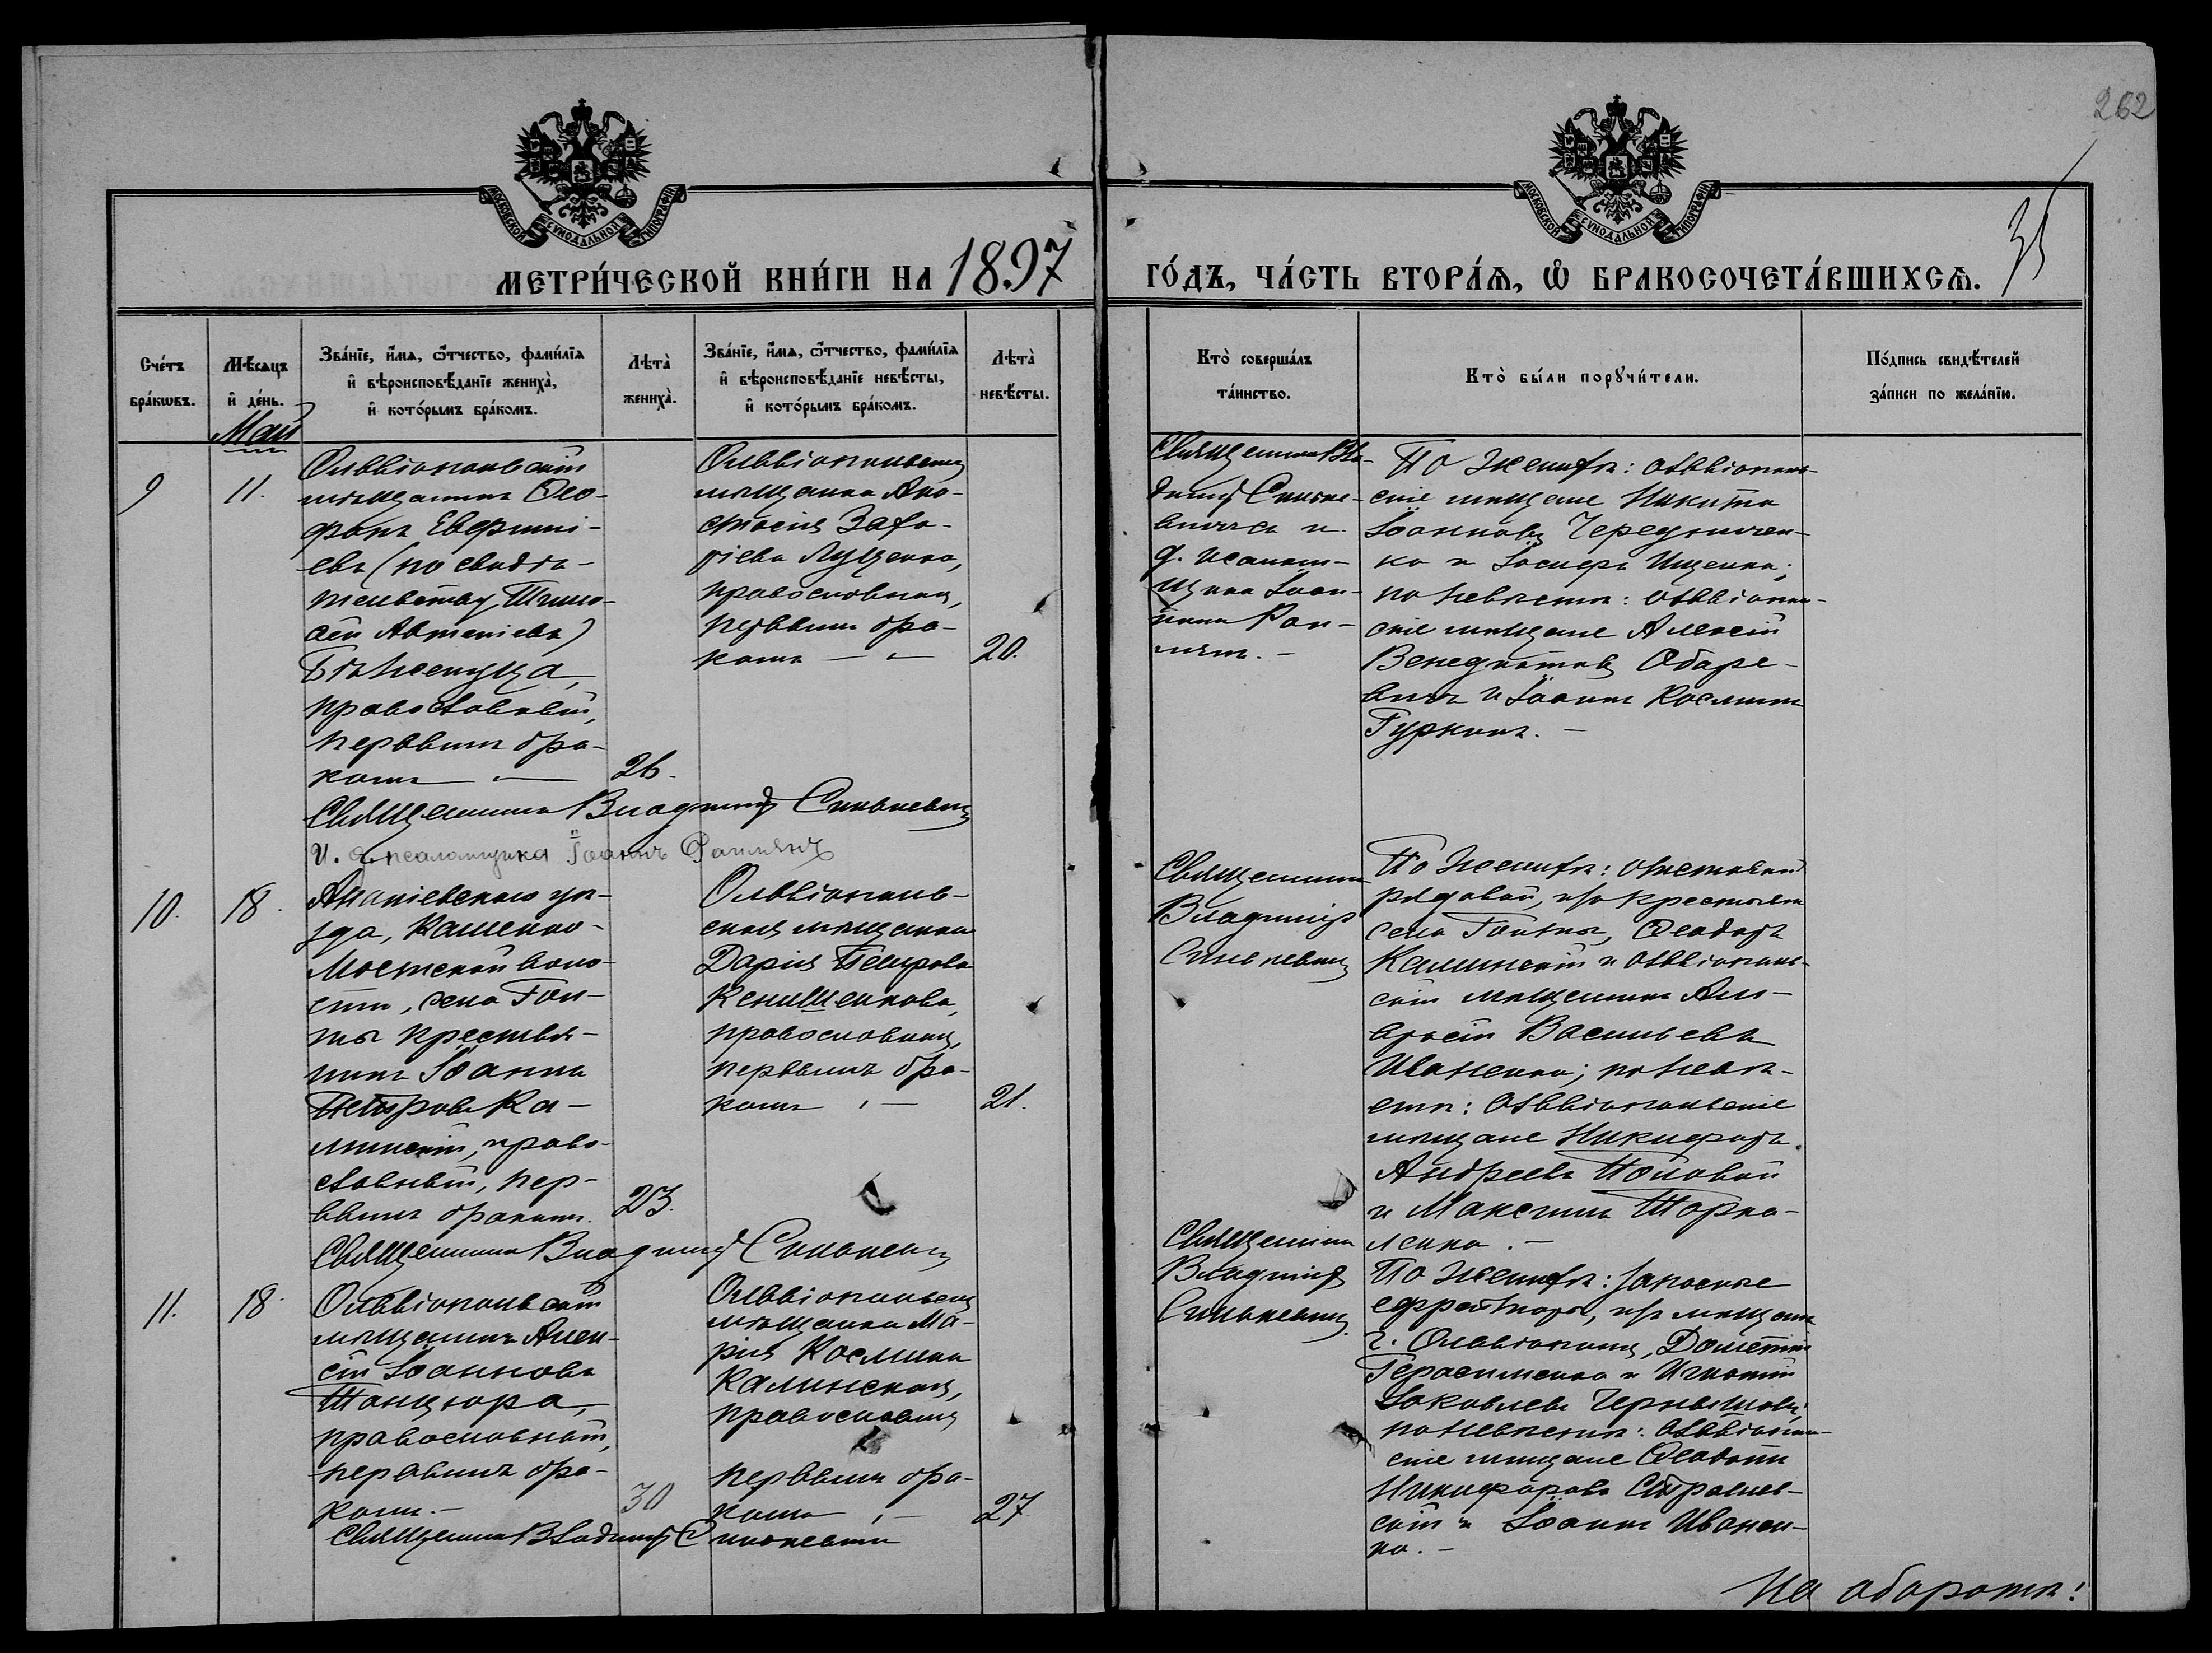 262
35
МОСКОВСКОЙ СѴНОДАЛЬНОЙ ТИПОГРАФІИ
МОСКОВСКОЙ СѴНОДАЛЬНОЙ ТИПОГРАФІИ
МЕТРИ́ЧЕСКОЙ КНИ́ГИ НА 1897
ГО́ДЪ, ЧА́СТЬ ВТОРА́Ѧ, Ѽ БРАКОСОЧЕТА́ВШИХСѦ.
Сче́тъ
бра́кѡвъ.
Мѣ́сѧцъ
и҆ де́нь.
Май
Зва́нїе, и҆́мѧ, ѻ҆́тчество, фамн́лїѧ
и҆ вѣроисповѣ́данїе жениха̀,
и҆ кото́рымъ бра́комъ.
Лѣта̀
жениха̀.
Зва́нїе, и҆́мѧ, ѻ҆́тчество, фами́лїѧ
и҆ вѣроисповѣ́данїе невѣ́сты,
и҆ кото́рымъ бра́комъ.
Лѣта̀
невѣ́сты.
Кто̀ соверша́лъ
та́инство.
Кто̀ бы́ли порꙋчи́тели.
По́дпись свидѣ́телей
за́писи по жела́нїю.
9
11.
Ольвіопольскій
мѣщанинъ Ѳео-
фанъ Евфимі-
евъ (по свидѣ-
тельству, Тимо-
ѳей Автоніевъ)
Бѣженуца,
православный,
первымъ бра-
комъ —
26.
Ольвіопольская
мѣщанка Ана-
стасія Заха-
ріева Луценко,
православная,
первымъ бра-
комъ —
20.
Священникъ Вла-
димір Синьке-
вичъ и
д. псаломщ-
щика Іоан-
нъ
По женихѣ: ольвіополь-
скіе мѣщане Никита
Іоанновъ Чередничен-
ко и Іосифъ Ищенко;
по невѣстѣ: ольвіополь-
скіе мѣщане Алексій
Венедиктовъ Обаре-
вичъ и Іоаннъ Косминъ
Гуркинъ. —
Священникъ Владиміръ Синькевичъ
И. д. псаломщика Іоаннъ
10.
18.
Ананіевскаго уѣ-
зда, Каменно-
Мостской воло-
сти, села Гол-
ты крестья-
нинъ Іоаннъ
Петровъ Ка-
линскій, право-
славный, пер-
вымъ бракомъ.
23.
Ольвіополь-
ская мѣщанка
Дарія Петрова
православная,
первымъ бра-
комъ —
21.
Священникъ
Владиміръ
Синькевичъ
По женихѣ: отставной
рядовой, изъ крестьянъ
села Голты, Ѳеодоръ
Калинскій и ольвіополь-
скій мѣщанинъ Ам-
вросій Васильевъ
Иваненко; по невѣ-
стѣ: Ольвіопольскіе
мѣщане Никифоръ
Андреевъ Половой
и Максимъ Торка-
ленко. —
Священникъ Владиміръ Синькевичъ
11.
18.
Ольвіопольскій
мѣщанинъ Алек-
сій Іоанновъ
Танцюра,
православный,
первымъ бра-
комъ. —
30
Ольвіопольская
мѣщанка Ма-
рія Космина
Калинская,
православная
первымъ бра-
комъ —
27
Священникъ
Владиміръ
Синькевичъ
По женихѣ: запасные
ефрейторы, изъ мѣщанъ
г. Ольвіополя, Дометій
Герасименко и Игнатій
Іаковлевъ Чернышовъ;
по невѣстѣ: ольвіополь-
скіе мѣщане Ѳеодотъ
Никифоровъ
и Іоаннъ Иванен-
ко. —
Священникъ Владиміръ Синькевичъ
На оборотѣ!